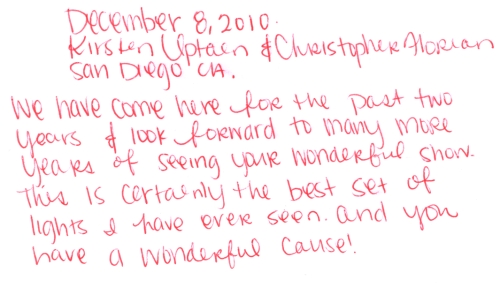 December 8, 2010.
Kirsten Uptain & Christopher Florian
San Diego CA.
We have come here for the past two
years & look forward to many more
years of seeing your wonderful show.
This is certainly the best set of
lights I have ever seen. and you
have a wonderful cause!